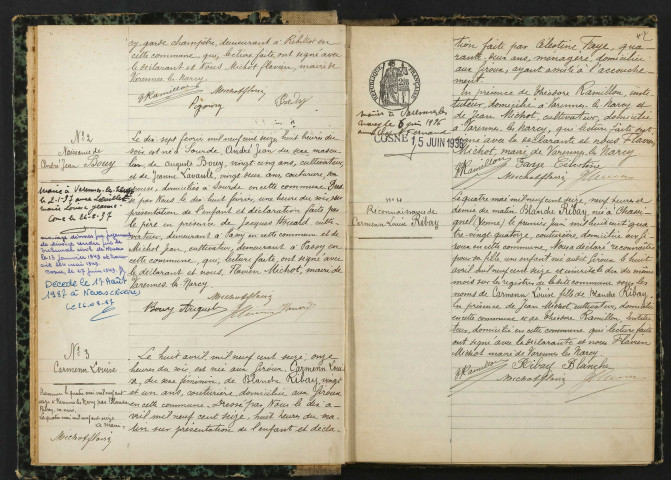 oy garde champêtre, demeurant à Rebillot en
cette commune que, lecture faite, ont signé avec
le déclarant et Nous Michot Flavien, maire de
Varennes les Narcy.
Ramillon
Michot flavien
N° 2
Naissance de
André Jean Bouy
Marié à Varennes-les-Narcy
le 2-1-37
Cosne le 22-2-37
mariage dissous par jugement
de divorce rendu par le
tribunal civil de
le 13 janvier 1949
Cosne, le 27 juin 1949
Décédé le 17 Août
1987 à Nevers (Nièvre)
Le dix sept février mil neuf cent seize huit heures du
soir est né à Sourde, André Jean du sexe mascu-
lin de Auguste Bouy, vingt cinq ans, cultivateur
et de Jeanne Lavault, vingt deux ans couturière, son
épouse, domiciliés à Sourde en cette commune. Dres-
sé par Nous le dix huit février, une heure du soir sur
présentation de l'enfant et déclaration faite par
le père en présence de Jacques
demeurant à Passy en cette commune et de
Michot Jean, cultivateur, demeurant à Passy en
cette commune, qui, lecture faite, ont signé avec
le déclarant et nous, Flavien Michot, maire de
Varennes les Narcy.
Michot flavien
Bouy Auguste
N° 3
Carmenn Louise
Michot flavien
Le huit avril mil neuf cent seize, onze
heures du soir, est née aux Giroux, Carmenn Loui-
se, du sexe féminin, de Blanche Ribay, vingt
et un ans, couturière domiciliée aux Giroux
en cette commune. Dressé par Nous le dix a-
vril mil neuf cent seize, huit heures du ma-
tin sur présentation de l'enfant et décla-
ration faite par Célestine Faye, qua-
rante deux ans, ménagère, domiciliée
aux Giroux, ayant assisté à l'accouche-
ment.
En présence de Théodore Ramillon, insti-
tuteur, domicilié à Varennes les Narcy et
de Jean Michot, cultivateur, domicilié
à Varennes les Narcy, qui lecture faite ont
signé avec la déclarante et nous Flavien
Michot, maire de Varennes les Narcy.
Ramillon
Faye Célestine
Michot flavien
RÉPUBLIQUE FRANÇAISE
Mariée à Varennes les
Narcy le 6 juin 1936
COSNE 15 JUIN 1936
N° 4
Reconnaissance de
Carmenn Louise Ribay
Le quatre mai mil neuf cent seize, neuf heures et
demie du matin Blanche Ribay, née à
(Yonne) le premier juin mil huit cent qua-
tre vingt quatorze, couturière domiciliée aux Gi-
roux en cette commune. Nous déclare reconnaître
pour sa fille, un enfant née aux Giroux le huit
avril mil neuf cent seize et inscrite le dix du même
mois sur le registre de l'état civil de cette commune sous les
noms de Carmenn Louise fille de Blanche Ribay.
En présence de Jean Michot cultivateur, domicilié
en cette commune et de Théodore Ramillon, institu-
teur, domicilié en cette commune qui lecture faite
ont signé avec la déclarante et nous Flavien
Michot maire de Varennes les Narcy.
Ramillon
Ribay Blanche
Michot flavien